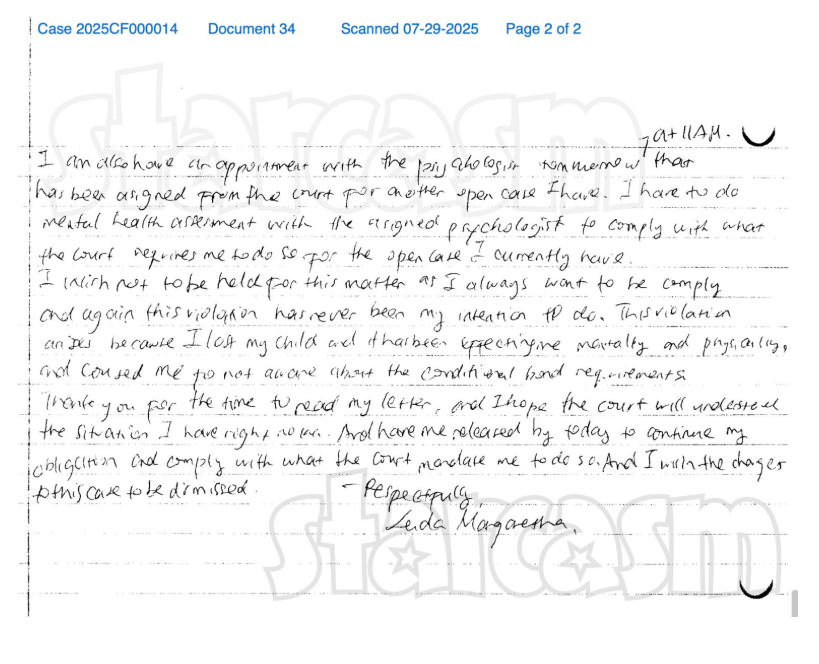 Case 2025CF000014 Document 34 Scanned 07-29-2025 Page 2 of 2
starcasm
at 11AM.
I am also have an appointment with the psychologist tommorrow that
has been asigned from the court for another open case I have. I have to do
mental health assesment with the asigned psychologist to comply with what
the court requires me to do so for the open case I currently have.
I wish not to be held for this matter as I always want to be comply
and again this violation has never been my intention to do. This violation
arises because I lost my child and it has been effecting me mentally and physically,
and caused me to not aware about the conditional bond requirements
Thank you for the time to read my letter, and I hope the court will understand
the situation I have right now. And have me released by today to continue my
obligation and comply with what the court mandate me to do so. And I wish the charges
to this case to be dismissed.
- Respectfully,
Leida Margaretha.
starcasm